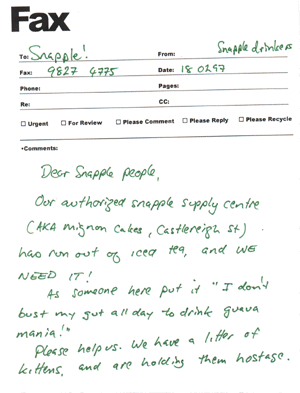 Fax
To: Snapple! From: Snapple drinkers
Fax: 9827 4775 Date: 18 02 97
Phone: Pages:
Re: CC:
☐ Urgent ☐ For Review ☐ Please Comment ☐ Please Reply ☐ Please Recycle
•Comments:
Dear Snapple people,
Our authorized snapple supply centre
(AKA mignon cakes, Castlereigh st)
has run out of iced tea, and WE
NEED IT!
As someone here put it "I don't
bust my gut all day to drink guava
mania!"
Please help us. We have a litter of
kittens, and are holding them hostage.